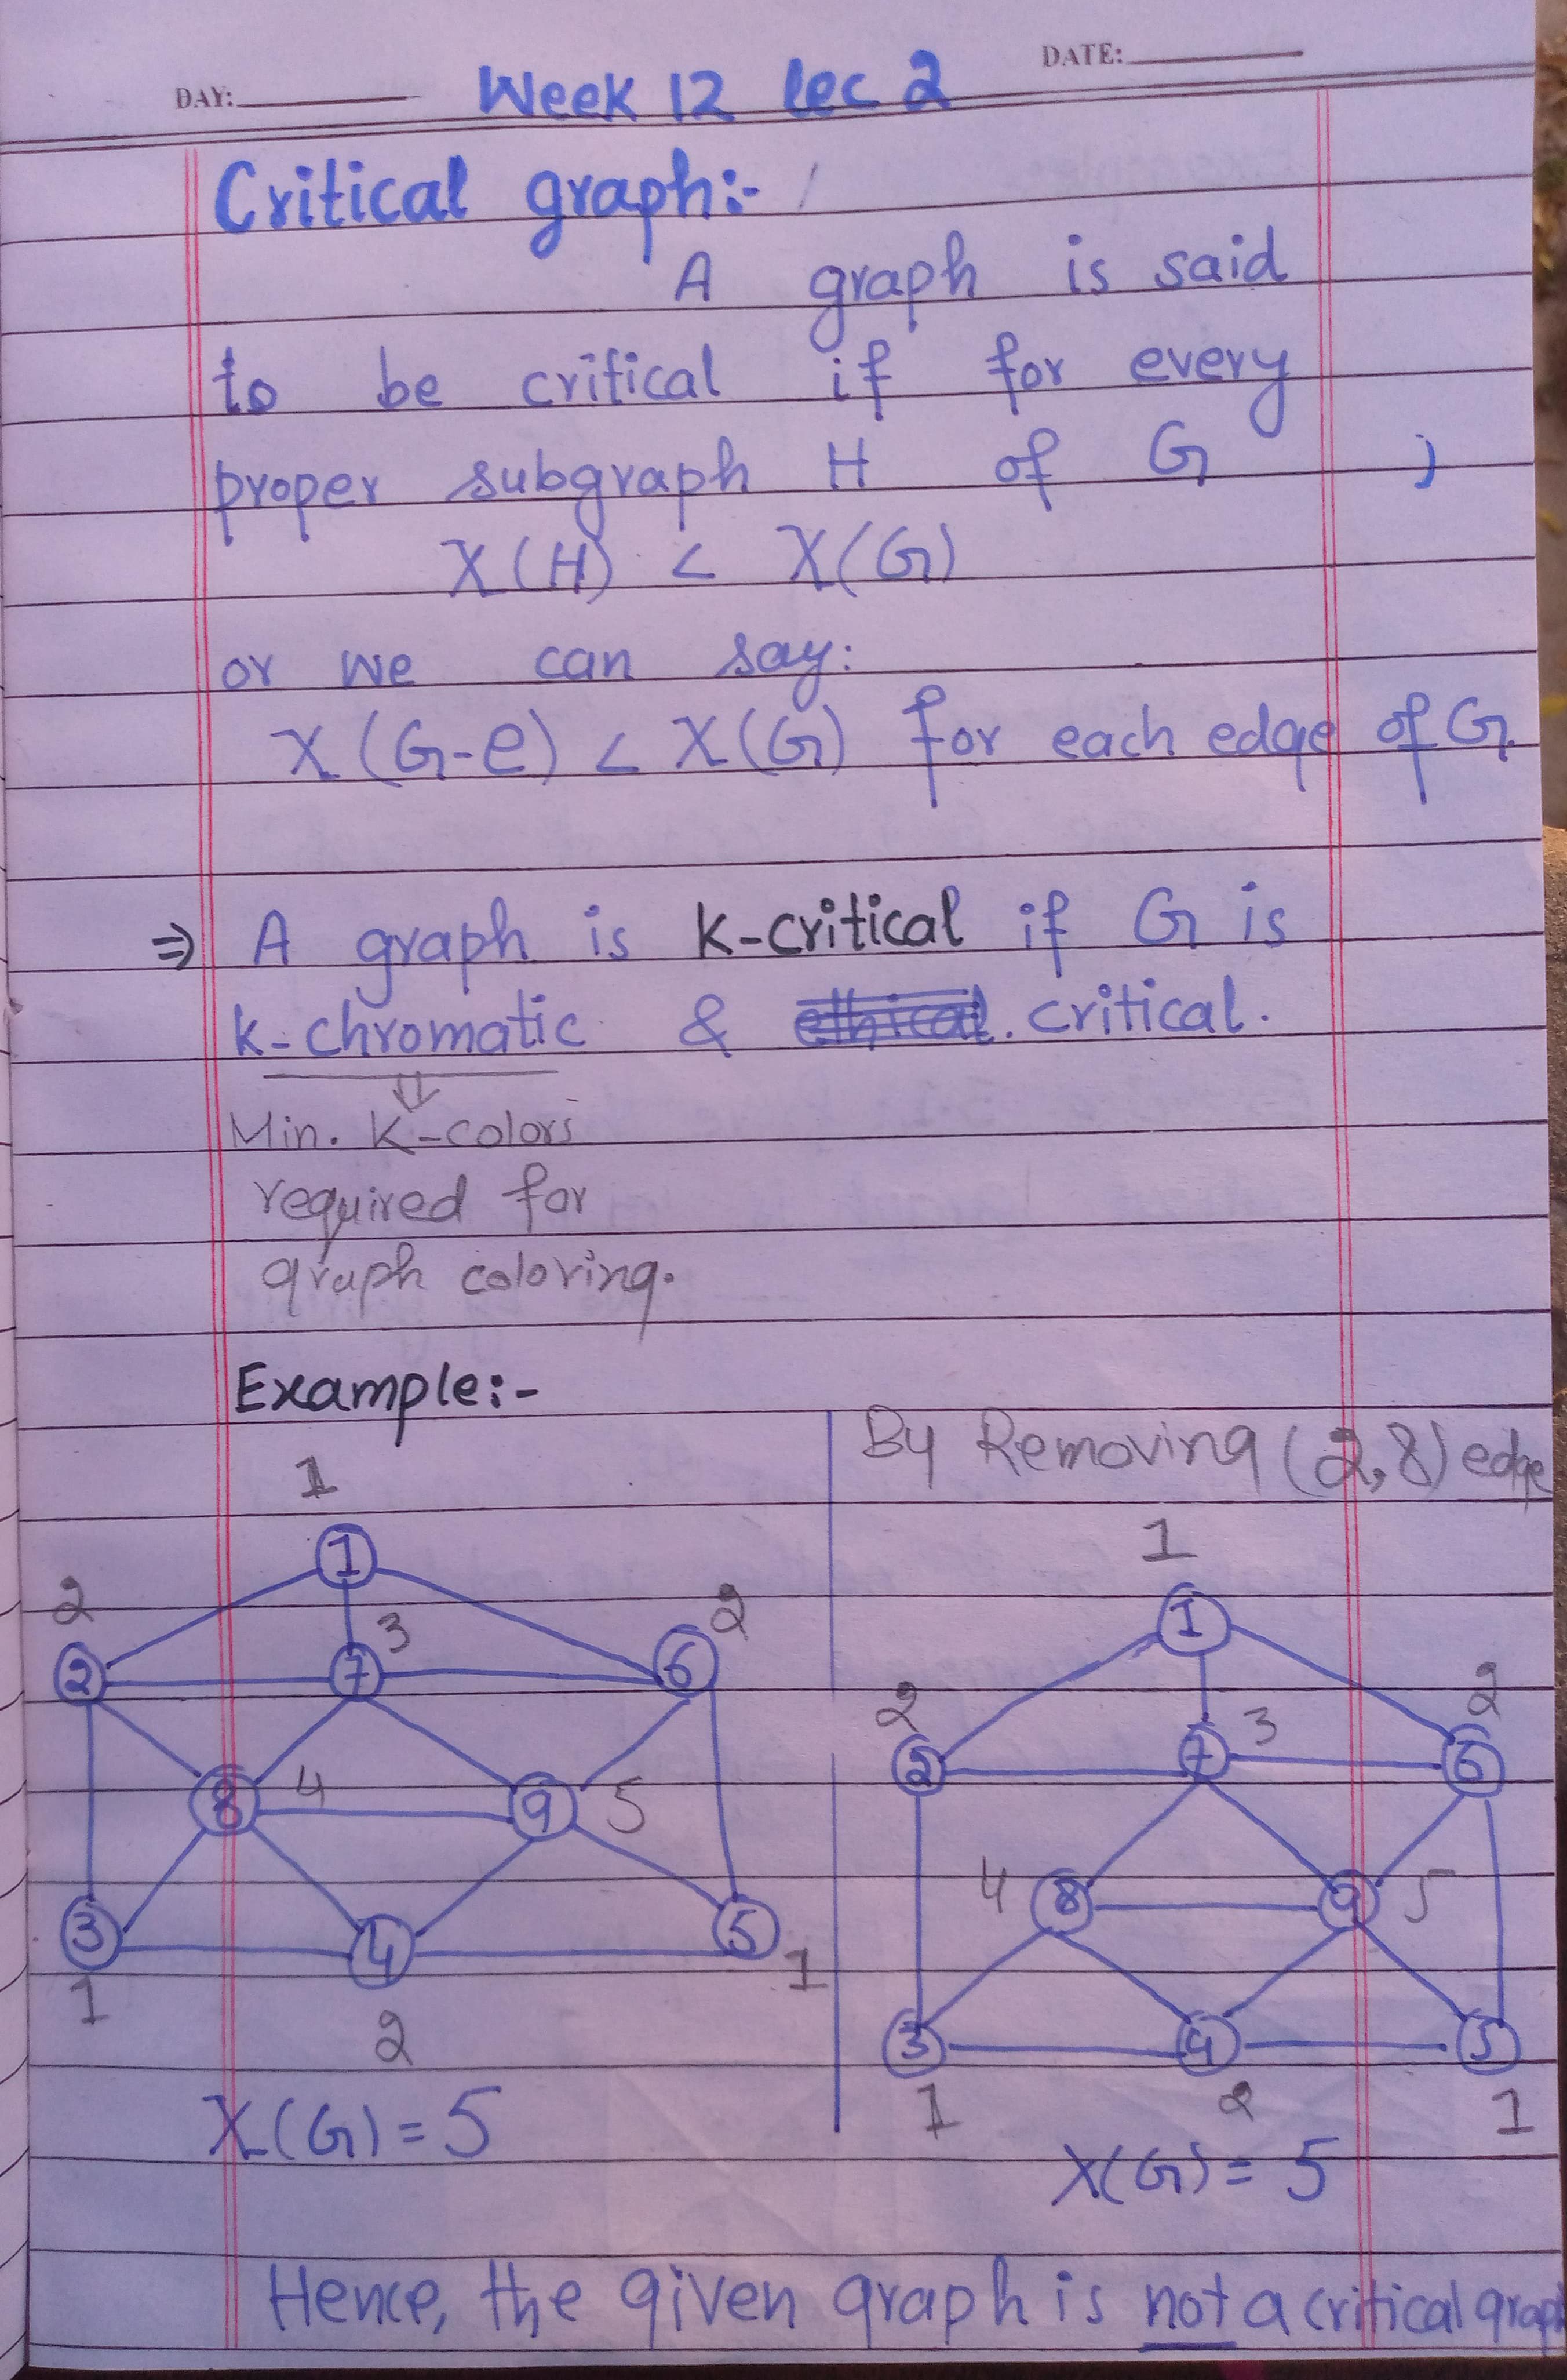 DAY: DATE:
Week 12 lec 2
Critical graph:-
A graph is said
to be critical if for every
proper subgraph H of G ,
X(H) < X(G)
or we can say:
X(G-e) < X(G) for each edge of G.
⇒ A graph is K-critical if G is
k-chromatic & ethical. critical.
⇓
Min. K-colors
required for
graph coloring.
Example:-
1
1
2
3
2
2 7 6
8 4 9 5
3 4 5
1
2
1
X(G) = 5
By Removing (2,8) edge
1
1
2
3
2
2 7 6
4 8 9 5
3 4 5
1 2 1
X(G) = 5
Hence, the given graph is not a critical graph